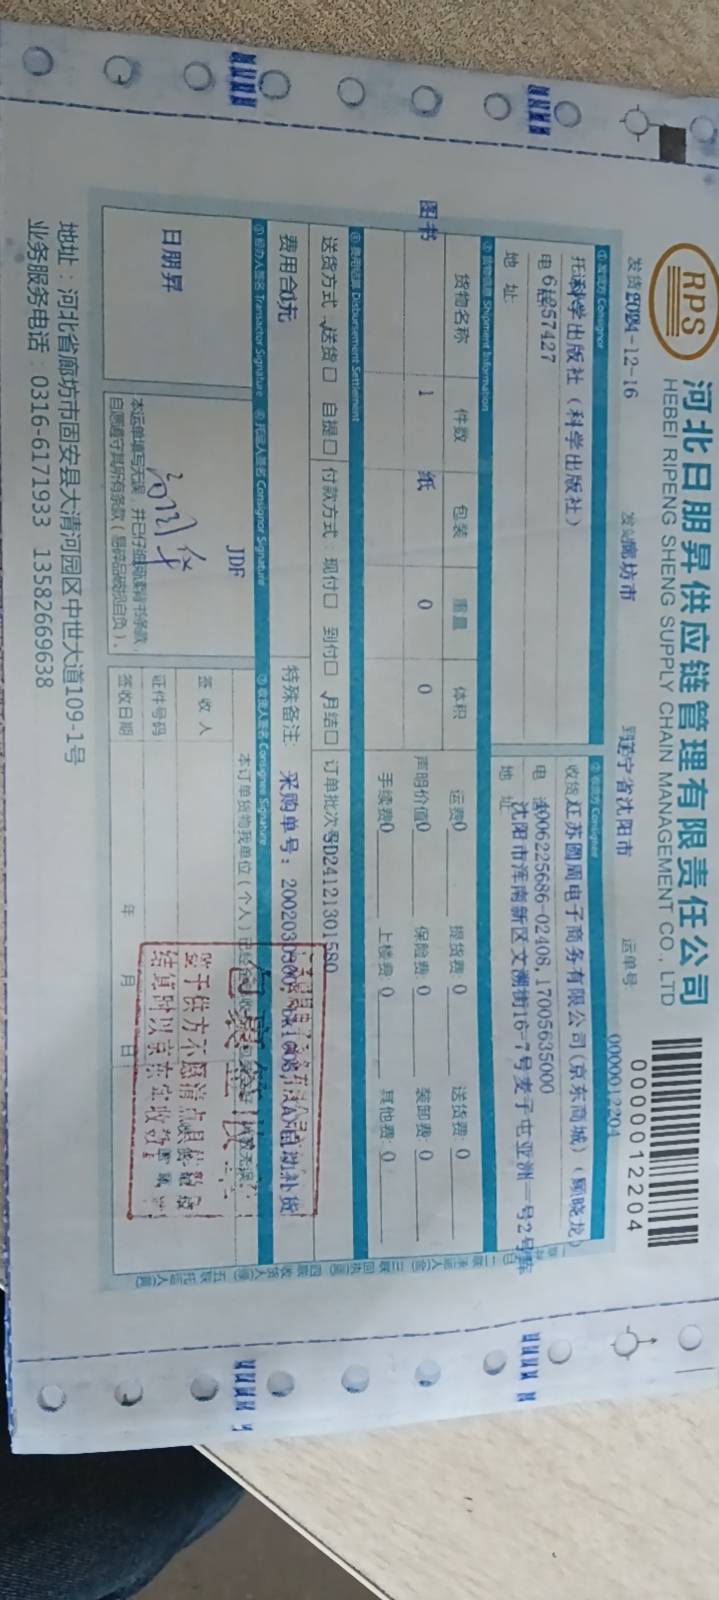 RPS
河北日朋昇供应链管理有限责任公司
HEBEI RIPENG SHENG SUPPLY CHAIN MANAGEMENT CO., LTD
0000012204
发货 2024-12-16 发站 廊坊市 到 辽宁省沈阳市 运单号: 0000012204
① 发货方 Consignor
科学出版社（科学出版社）
电 61257427
地 址
② 收货方 Consignee
收货 江苏圆周电子商务有限公司(京东商城)（顾晓龙）
电 4006225686-02408,17005635000
地 址 沈阳市浑南新区文溯街16-7号麦子屯亚洲一号2号库
③ 货物信息 Shipment Information
货物名称 件数 包装 重量 体积
图书 1 纸 0 0
运费 0 提货费: 0 送货费: 0
声明价值 0 保险费: 0 装卸费: 0
手续费 0 上楼费: 0 其他费: 0
④ 费用结算 Disbursement Settlement
送货方式: 送货□ 自提□ 付款方式: 现付□ 到付□ 月结□ 订单批次号 SD24121301580
费用合 0元 特殊备注: 采购单号: 自动补货
⑤ 经办人签名 Transactor Signature ⑥ 托运人签名 Consignor Signature ⑦ 收货人签名 Consignee Signature
日朋昇
JDF
本运单填写无误，并已仔细阅读背书条款，
自愿遵守其所有条款（易碎品破损自负）。
本订单货物我单位（个人）
签 收 人
证件号码
签收日期 年 月 日
鉴于供方不愿清点具体数
结算时以京东实收为
地址：河北省廊坊市固安县大清河园区中世大道109-1号
业务服务电话：0316-6171933 13582669638